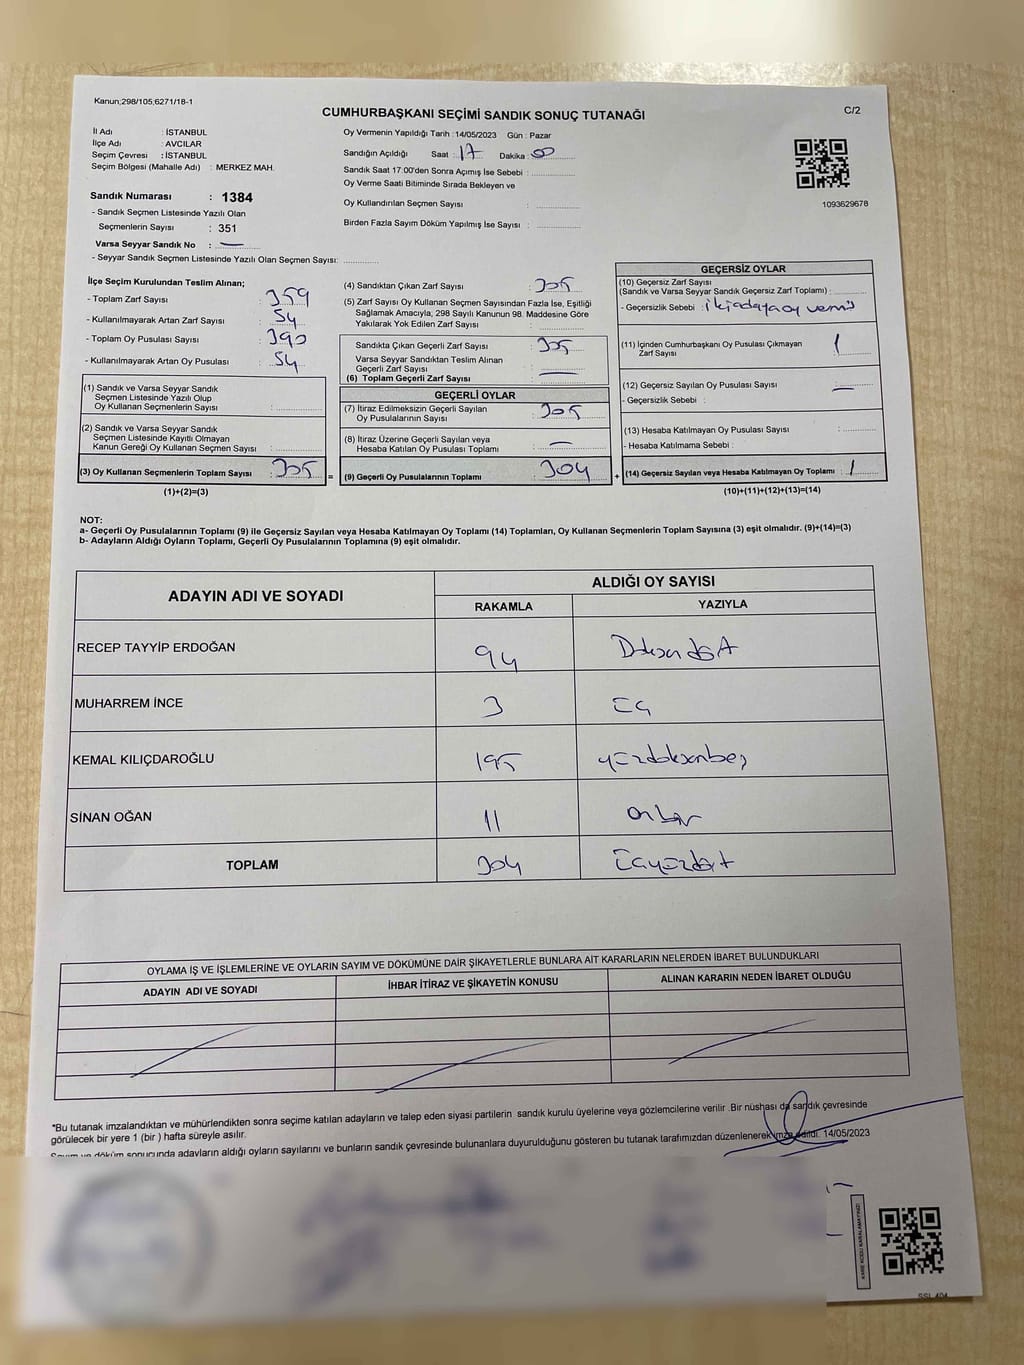 Kanun;298/105;6271/18-1
CUMHURBAŞKANI SEÇİMİ SANDIK SONUÇ TUTANAĞI
C/2
İl Adı : İSTANBUL
İlçe Adı : AVCILAR
Seçim Çevresi : İSTANBUL
Seçim Bölgesi (Mahalle Adı) : MERKEZ MAH.
Sandık Numarası : 1384
- Sandık Seçmen Listesinde Yazılı Olan
Seçmenlerin Sayısı : 351
Varsa Seyyar Sandık No : —
- Seyyar Sandık Seçmen Listesinde Yazılı Olan Seçmen Sayısı:
Oy Vermenin Yapıldığı Tarih : 14/05/2023 Gün : Pazar
Sandığın Açıldığı Saat : 17 Dakika : 00
Sandık Saat 17:00'den Sonra Açımış İse Sebebi :
Oy Verme Saati Bitiminde Sırada Bekleyen ve
Oy Kullandırılan Seçmen Sayısı :
Birden Fazla Sayım Döküm Yapılmış İse Sayısı :
1093629678
İlçe Seçim Kurulundan Teslim Alınan;
- Toplam Zarf Sayısı : 359
- Kullanılmayarak Artan Zarf Sayısı : 54
- Toplam Oy Pusulası Sayısı : 390
- Kullanılmayarak Artan Oy Pusulası : 54
(1) Sandık ve Varsa Seyyar Sandık
Seçmen Listesinde Yazılı Olup
Oy Kullanan Seçmenlerin Sayısı :
(2) Sandık ve Varsa Seyyar Sandık
Seçmen Listesinde Kayıtlı Olmayan
Kanun Gereği Oy Kullanan Seçmen Sayısı :
(3) Oy Kullanan Seçmenlerin Toplam Sayısı : 305
(1)+(2)=(3)
(4) Sandıktan Çıkan Zarf Sayısı : 305
(5) Zarf Sayısı Oy Kullanan Seçmen Sayısından Fazla İse, Eşitliği
Sağlamak Amacıyla, 298 Sayılı Kanunun 98. Maddesine Göre
Yakılarak Yok Edilen Zarf Sayısı :
Sandıkta Çıkan Geçerli Zarf Sayısı : 305
Varsa Seyyar Sandıktan Teslim Alınan
Geçerli Zarf Sayısı : —
(6) Toplam Geçerli Zarf Sayısı
GEÇERLİ OYLAR
(7) İtiraz Edilmeksizin Geçerli Sayılan
Oy Pusulalarının Sayısı : 305
(8) İtiraz Üzerine Geçerli Sayılan veya
Hesaba Katılan Oy Pusulası Toplamı : —
= (9) Geçerli Oy Pusulalarının Toplamı : 304
GEÇERSİZ OYLAR
(10) Geçersiz Zarf Sayısı
(Sandık ve Varsa Seyyar Sandık Geçersiz Zarf Toplamı) :
- Geçersizlik Sebebi : iki adaya oy vermiş
(11) İçinden Cumhurbaşkanı Oy Pusulası Çıkmayan
Zarf Sayısı : 1
(12) Geçersiz Sayılan Oy Pusulası Sayısı : —
- Geçersizlik Sebebi :
(13) Hesaba Katılmayan Oy Pusulası Sayısı :
- Hesaba Katılmama Sebebi :
+ (14) Geçersiz Sayılan veya Hesaba Katılmayan Oy Toplamı : 1
(10)+(11)+(12)+(13)=(14)
NOT:
a- Geçerli Oy Pusulalarının Toplamı (9) ile Geçersiz Sayılan veya Hesaba Katılmayan Oy Toplamı (14) Toplamları, Oy Kullanan Seçmenlerin Toplam Sayısına (3) eşit olmalıdır. (9)+(14)=(3)
b- Adayların Aldığı Oyların Toplamı, Geçerli Oy Pusulalarının Toplamına (9) eşit olmalıdır.
ADAYIN ADI VE SOYADI
ALDIĞI OY SAYISI
RAKAMLA YAZIYLA
RECEP TAYYİP ERDOĞAN 94 Doksandört
MUHARREM İNCE 3 Üç
KEMAL KILIÇDAROĞLU 195 yüzdoksanbeş
SİNAN OĞAN 11 onbir
TOPLAM 304 Üçyüzdört
OYLAMA İŞ VE İŞLEMLERİNE VE OYLARIN SAYIM VE DÖKÜMÜNE DAİR ŞİKAYETLERLE BUNLARA AİT KARARLARIN NELERDEN İBARET BULUNDUKLARI
ADAYIN ADI VE SOYADI İHBAR İTİRAZ VE ŞİKAYETİN KONUSU ALINAN KARARIN NEDEN İBARET OLDUĞU
*Bu tutanak imzalandıktan ve mühürlendikten sonra seçime katılan adayların ve talep eden siyasi partilerin sandık kurulu üyelerine veya gözlemcilerine verilir .Bir nüshası da sandık çevresinde
görülecek bir yere 1 (bir ) hafta süreyle asılır.
Sayım ve döküm sonucunda adayların aldığı oyların sayılarını ve bunların sandık çevresinde bulunanlara duyurulduğunu gösteren bu tutanak tarafımızdan düzenlenerek imza edildi. 14/05/2023
KARE KODU KARALAMAYINIZ!
SSL 404